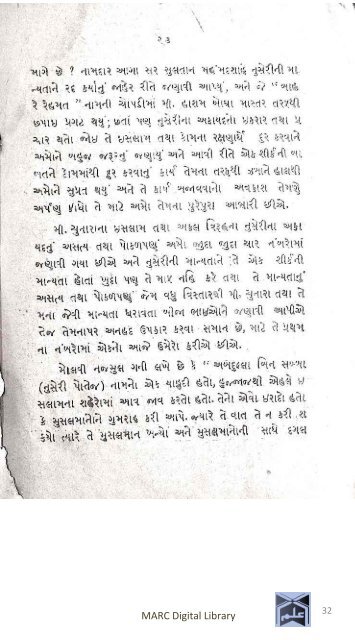 ૨૩
માગે છે ? નામદાર આગા સર સુલતાન મહંમદશાહે નુસેરીની મા
ન્યતાને રદ કર્યાનું જાહેર રીતે જણાવી આપ્યું, અને જે "રાહ
રે રેહમત" નામની ચોપડીમાં મી. હાશમ બોઘા માસ્તર તરફથી
છપાઇ પ્રગટ થયું; છતાં પણ નુસેરીના અકાયદના ઇકરાર તથા પ્ર
ચાર થતો જોઇ તે ઇસલામ તથા કોમના રક્ષણાર્થે દુર કરવાને
અમોને બહુજ જરૂરનું જણાયું અને આવી રીતે એક શીર્કની બા
બતને કોમમાંથી દુર કરવાનું કાર્ય તેમના તરફથી ઝમાને હાલથી
અમોને સુપ્રત થયું અને તે કાર્ય બજાવવાનો અવકાશ તેમણે
અર્પણ કીધો તે માટે અમો તેમના પુરેપુરા આભારી છીએ.
મી. ચુનારાના ઇસલામ તથા અકલ વિરૂદ્ધના નુસેરીના અકા
યદનું અસત્ય તથા પોકળપણું અમો જુદા જુદા ચાર નંબરોમાં
જણાવી ગયા છીએ અને નુસેરીની માન્યતાને તે એક શીર્કની
માન્યતા હોતાં ખુદા પણ તે માફ નહિ કરે તથા તે માન્યતાનું
અસત્ય તથા પોકળપણું જેમ વધુ વિસ્તારથી મી. ચુનારા તથા તે
મના જેવી માન્યતા ધરાવતા બીજા ભાઇઓને જણાવી આપીએ
તેજ તેમનાપર અનહદ ઉપકાર કરવા સમાન છે, માટે તે પ્રથમ
ના નંબરોમાં એકનો આજે ઉમેરો કરીએ છીએ.
મોલવી નજમુલ ગની લખે છે કે "અબદુલ્લા બિન સબ્બા
(નુસેરી પોતેજ) નામનો એક યાહુદી હતો, હુજ્જાજથી એહલે ઇ
સલામના શહેરોમાં આવ જાવ કરતો હતો. તેનો એવો ઇરાદો હતો
કે મુસલમાનોને ગુમરાહ કરી આપે. જ્યારે તે વાત તે ન કરી શ
કયો ત્યારે તે મુસલમાન બન્યો અને મુસલમાનોની સાથે દગલ
MARC Digital Library
32